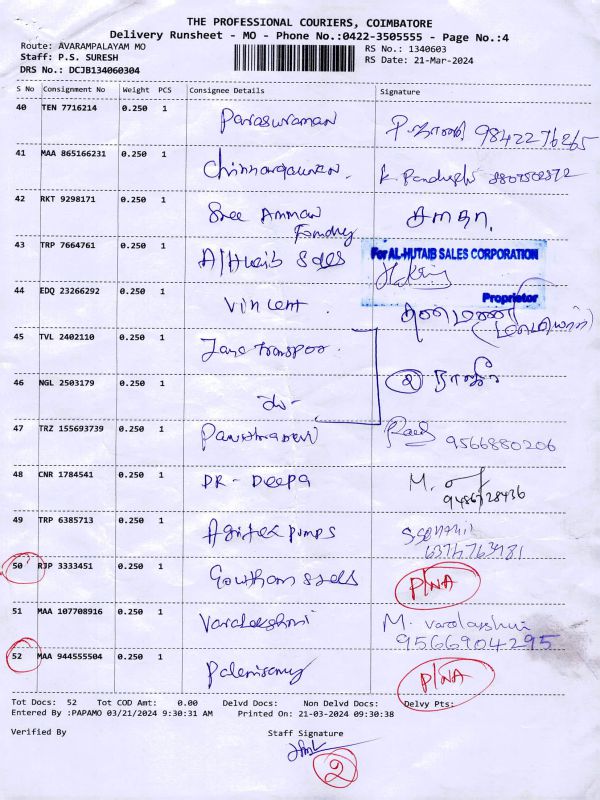 THE PROFESSIONAL COURIERS, COIMBATORE
Delivery Runsheet - MO - Phone No.:0422-3505555 - Page No.:4
Route: AVARAMPALAYAM MO RS No.: 1340603
Staff: P.S. SURESH RS Date: 21-Mar-2024
DRS No.: DCJB134060304
S No Consignment No Weight PCS Consignee Details Signature
40 TEN 7716214 0.250 1 Parasuraman
41 MAA 865166231 0.250 1
42 RKT 9298171 0.250 1 Sree Amman Foundry
43 TRP 7664761 0.250 1 Al Hutaib Sales For AL-HUTAIB SALES CORPORATION
Proprietor
44 EDQ 23266292 0.250 1 Vincent.
45 TVL 2402110 0.250 1
46 NGL 2503179 0.250 1 2
47 TRZ 155693739 0.250 1 9566880206
48 CNR 1784541 0.250 1 DR - Deepa M.
9486728436
49 TRP 6385713 0.250 1 pumps
50 RJP 3333451 0.250 1 Goutham Sales P/NA
51 MAA 107708916 0.250 1 Varalakshmi M. Varalakshmi
9566904295
52 MAA 944555504 0.250 1 Palanisamy P/NA
Tot Docs: 52 Tot COD Amt: 0.00 Delvd Docs: Non Delvd Docs: Delvy Pts:
Entered By :PAPAMO 03/21/2024 9:30:31 AM Printed On: 21-03-2024 09:30:38
Verified By Staff Signature
2